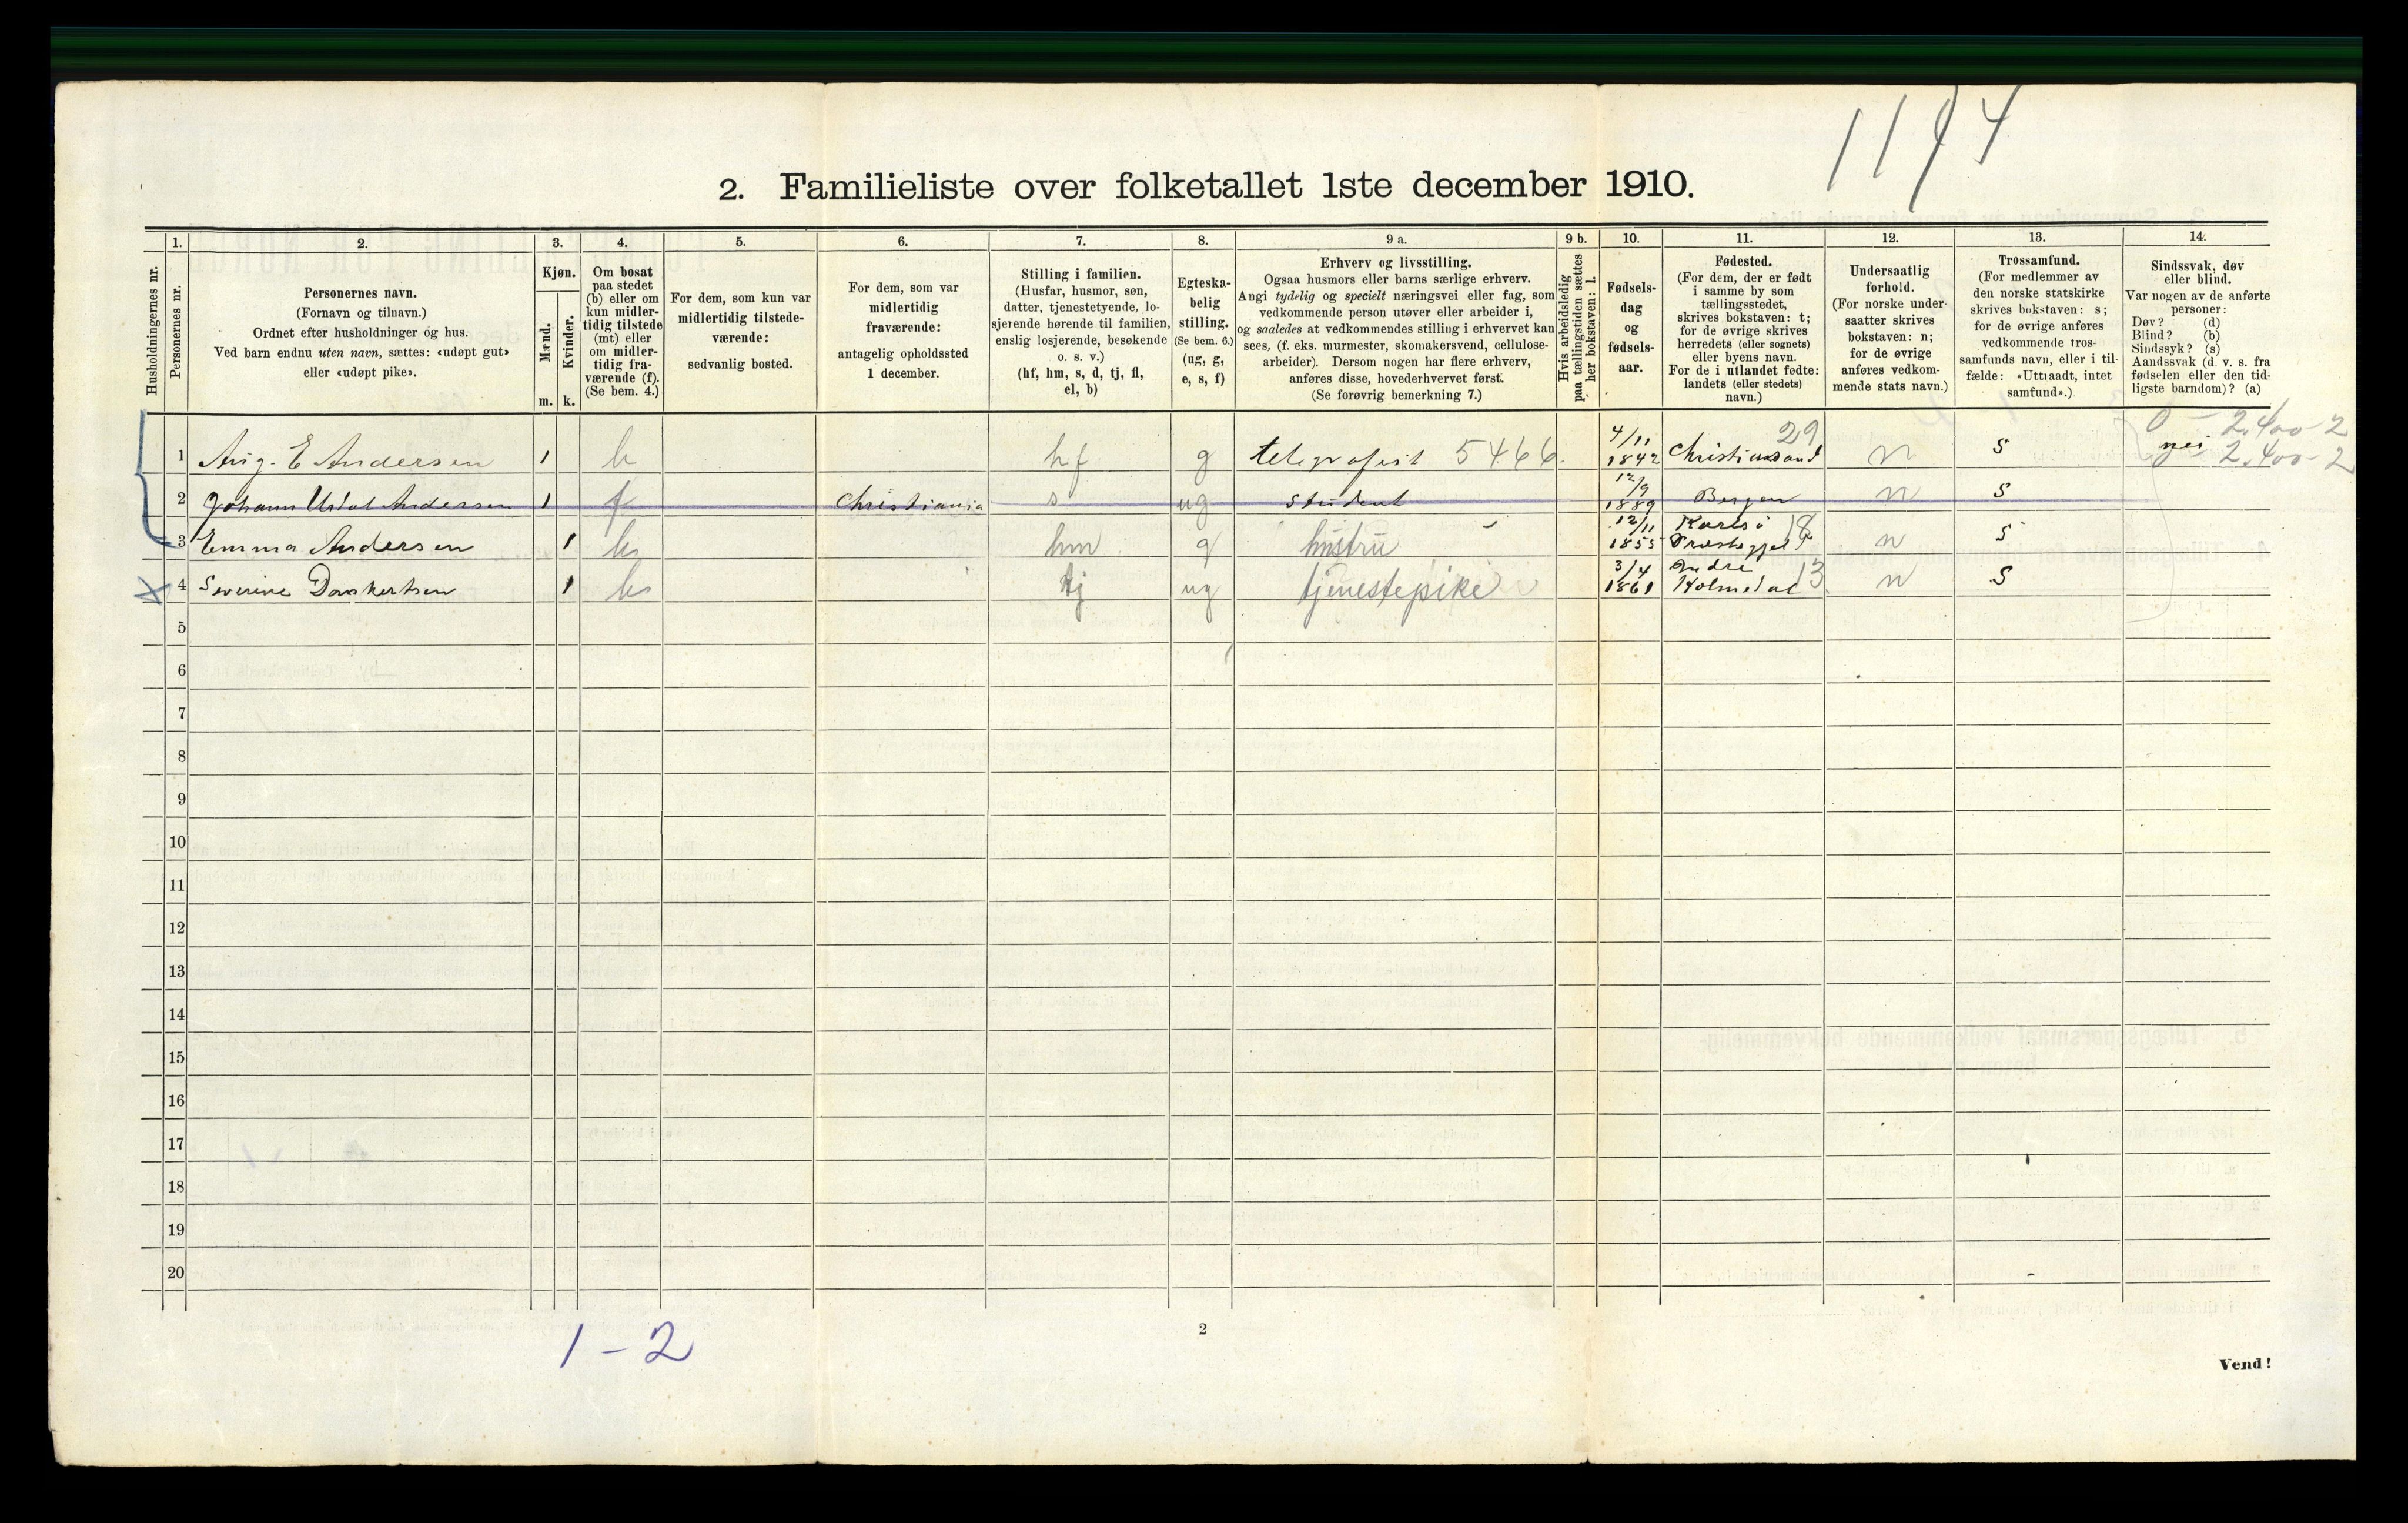 1194
2. Familieliste over folketallet 1ste december 1910.
Husholdningernes nr.
1.
Personernes nr.
2.
Personernes navn.
(Fornavn og tilnavn.)
Ordnet efter husholdninger og hus.
Ved barn endnu uten navn, sættes: «udøpt gut»
eller «udøpt pike».
3.
Kjøn.
Mænd.
Kvinder.
m. k.
4.
Om bosat
paa stedet
(b) eller om
kun midler-
tidig tilstede
(mt) eller
om midler-
tidig fra-
værende (f).
(Se bem. 4.)
5.
For dem, som kun var
midlertidig tilstede-
værende:
sedvanlig bosted.
6.
For dem, som var
midlertidig
fraværende:
antagelig opholdssted
1 december.
7.
Stilling i familien.
(Husfar, husmor, søn,
datter, tjenestetyende, lo-
sjerende hørende til familien,
enslig losjerende, besøkende
o. s. v.)
(hf, hm, s, d, tj, fl,
el, b)
8.
Egteska-
belig
stilling.
(Se bem. 6.)
(ug, g,
e, s, f)
9 a.
Erhverv og livsstilling.
Ogsaa husmors eller barns særlige erhverv.
Angi tydelig og specielt næringsvei eller fag, som
vedkommende person utøver eller arbeider i,
og saaledes at vedkommendes stilling i erhvervet kan
sees, (f. eks. murmester, skomakersvend, cellulose-
arbeider). Dersom nogen har flere erhverv,
anføres disse, hovederhvervet først.
(Se forøvrig bemerkning 7.)
9 b.
Hvis arbeidsledig
paa tællingstiden sættes
her bokstaven: l.
10.
Fødsels-
dag
og
fødsels-
aar.
11.
Fødested.
(For dem, der er født
i samme by som
tællingsstedet,
skrives bokstaven: t;
for de øvrige skrives
herredets (eller sognets)
eller byens navn.
For de i utlandet fødte:
landets (eller stedets)
navn.)
12.
Undersaatlig
forhold.
(For norske under-
saatter skrives
bokstaven: n;
for de øvrige
anføres vedkom-
mende stats navn.)
13.
Trossamfund.
(For medlemmer av
den norske statskirke
skrives bokstaven: s;
for de øvrige anføres
vedkommende tros-
samfunds navn, eller i til-
fælde: «Uttraadt, intet
samfund».)
14.
Sindssvak, døv
eller blind.
Var nogen av de anførte
personer:
Døv? (d)
Blind? (b)
Sindssyk? (s)
Aandssvak (d. v. s. fra
fødselen eller den tid-
ligste barndom)? (a)
0 - 2.400-2
1 Aug. E Andersen 1 b hf g telegrafist 5466. 4/11 1842 Christiansand 29 n s nei 2.400-2
2 Johann Andersen 1 f Christiania s ug student 12/9 1889 Bergen n s
3 Emma Andersen 1 b hm g hustru 12/11 1855 Karlsø Præstegjel 18 n s
4 Severine Dankertsen 1 b tj ug tjenestepike 3/4 1861 Indre Holmedal 13 n s
5
6
7
8
9
10
11
12
13
14
15
16
17
18
19
20
1-2
2
Vend!